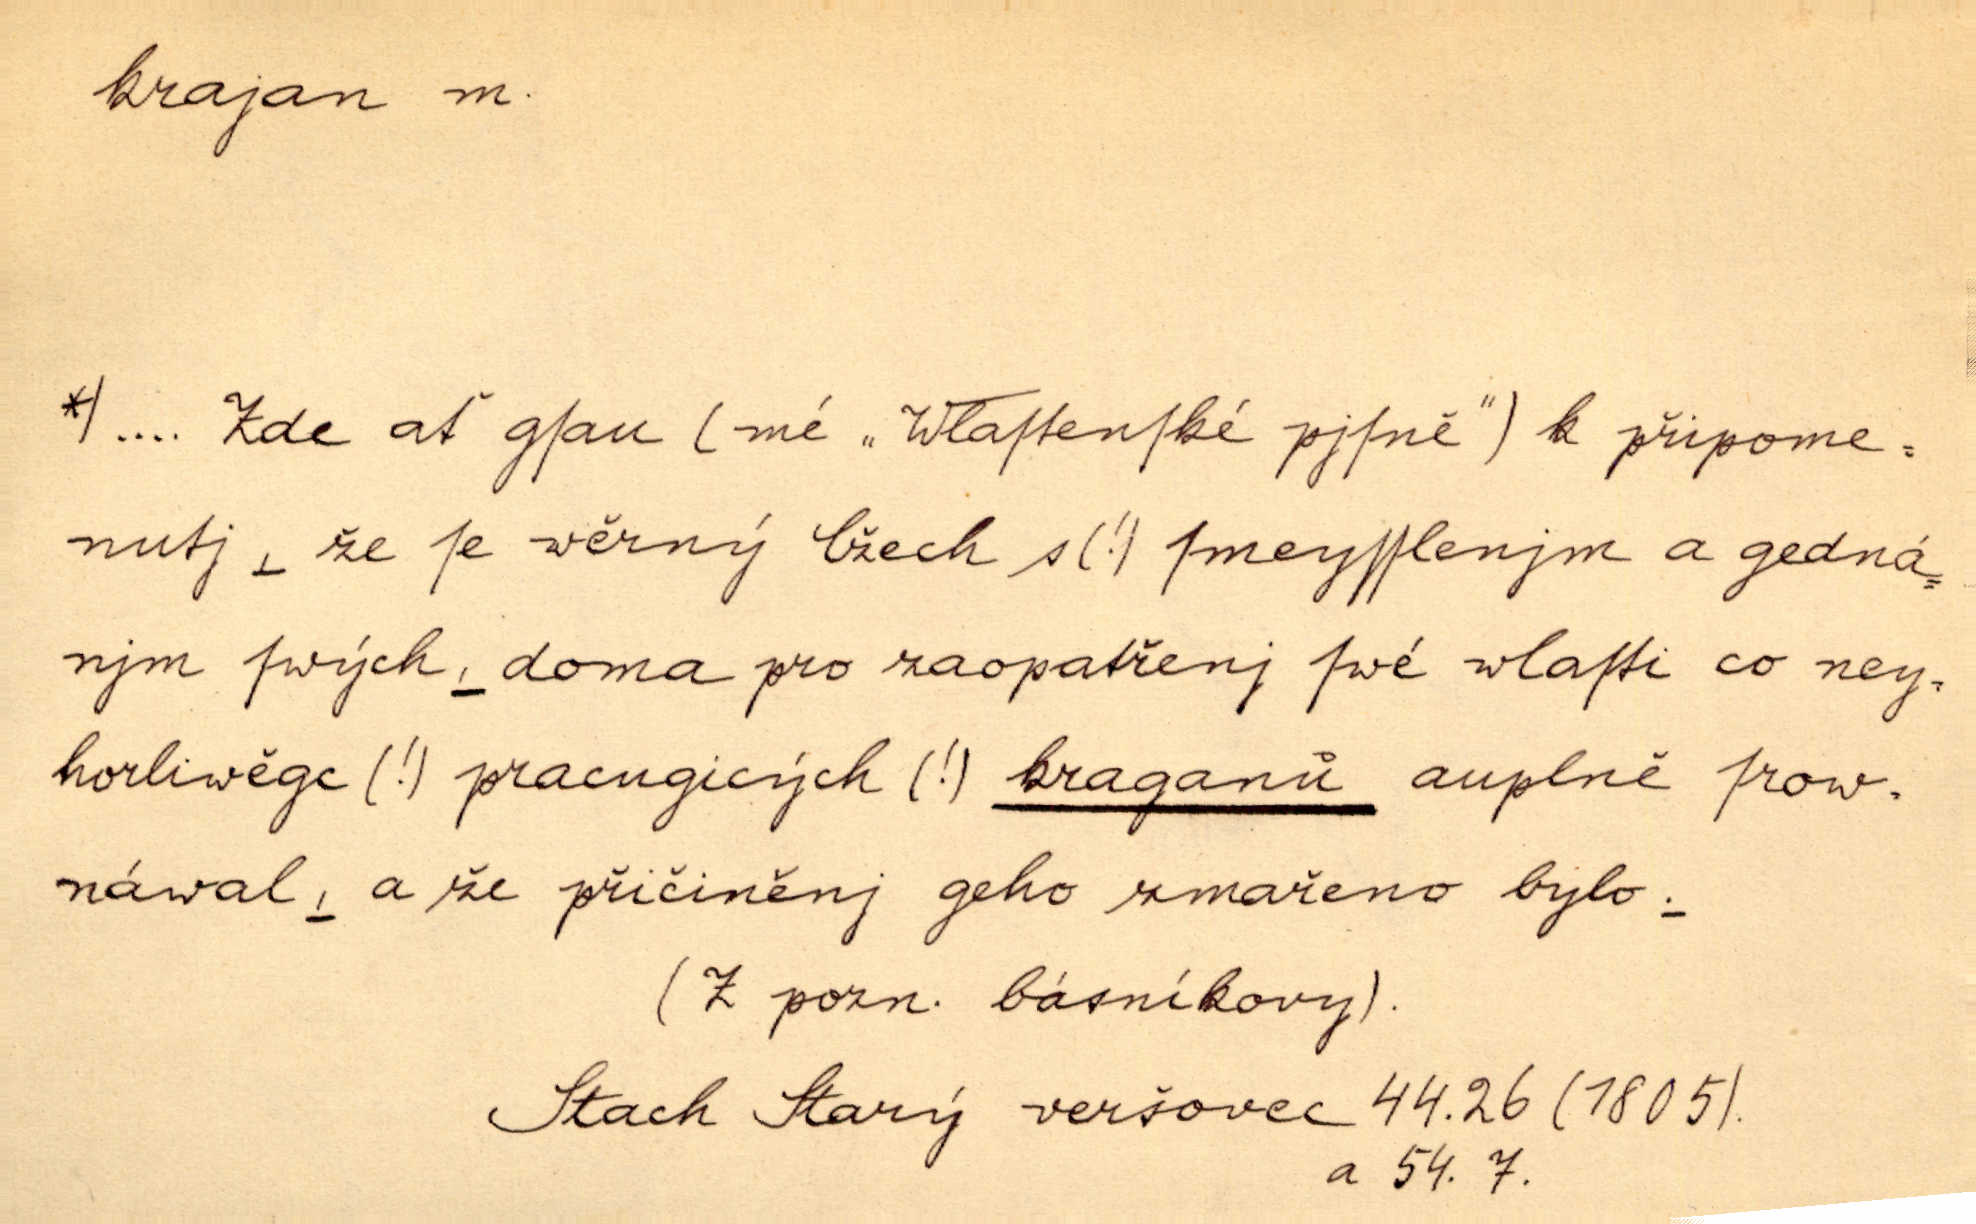 krajan m.
*) .... Zde ať gſau (mé „Wlaſtenſké pjſně") k připome-
nutj, že ſe wěrný Čžech s(!) ſmeyſſlenjm a gedná=
njm ſwých, doma pro zaopatřenj ſwé wlaſti co ney-
horliwěgc (!) pracugicých (!) kraganů auplně ſrow-
náwal, a že přičiněnj geho zmařeno bylo.
(Z pozn. básníkovy).
Stach Starý veršovec 44.26 (1805).
a 54. 7.